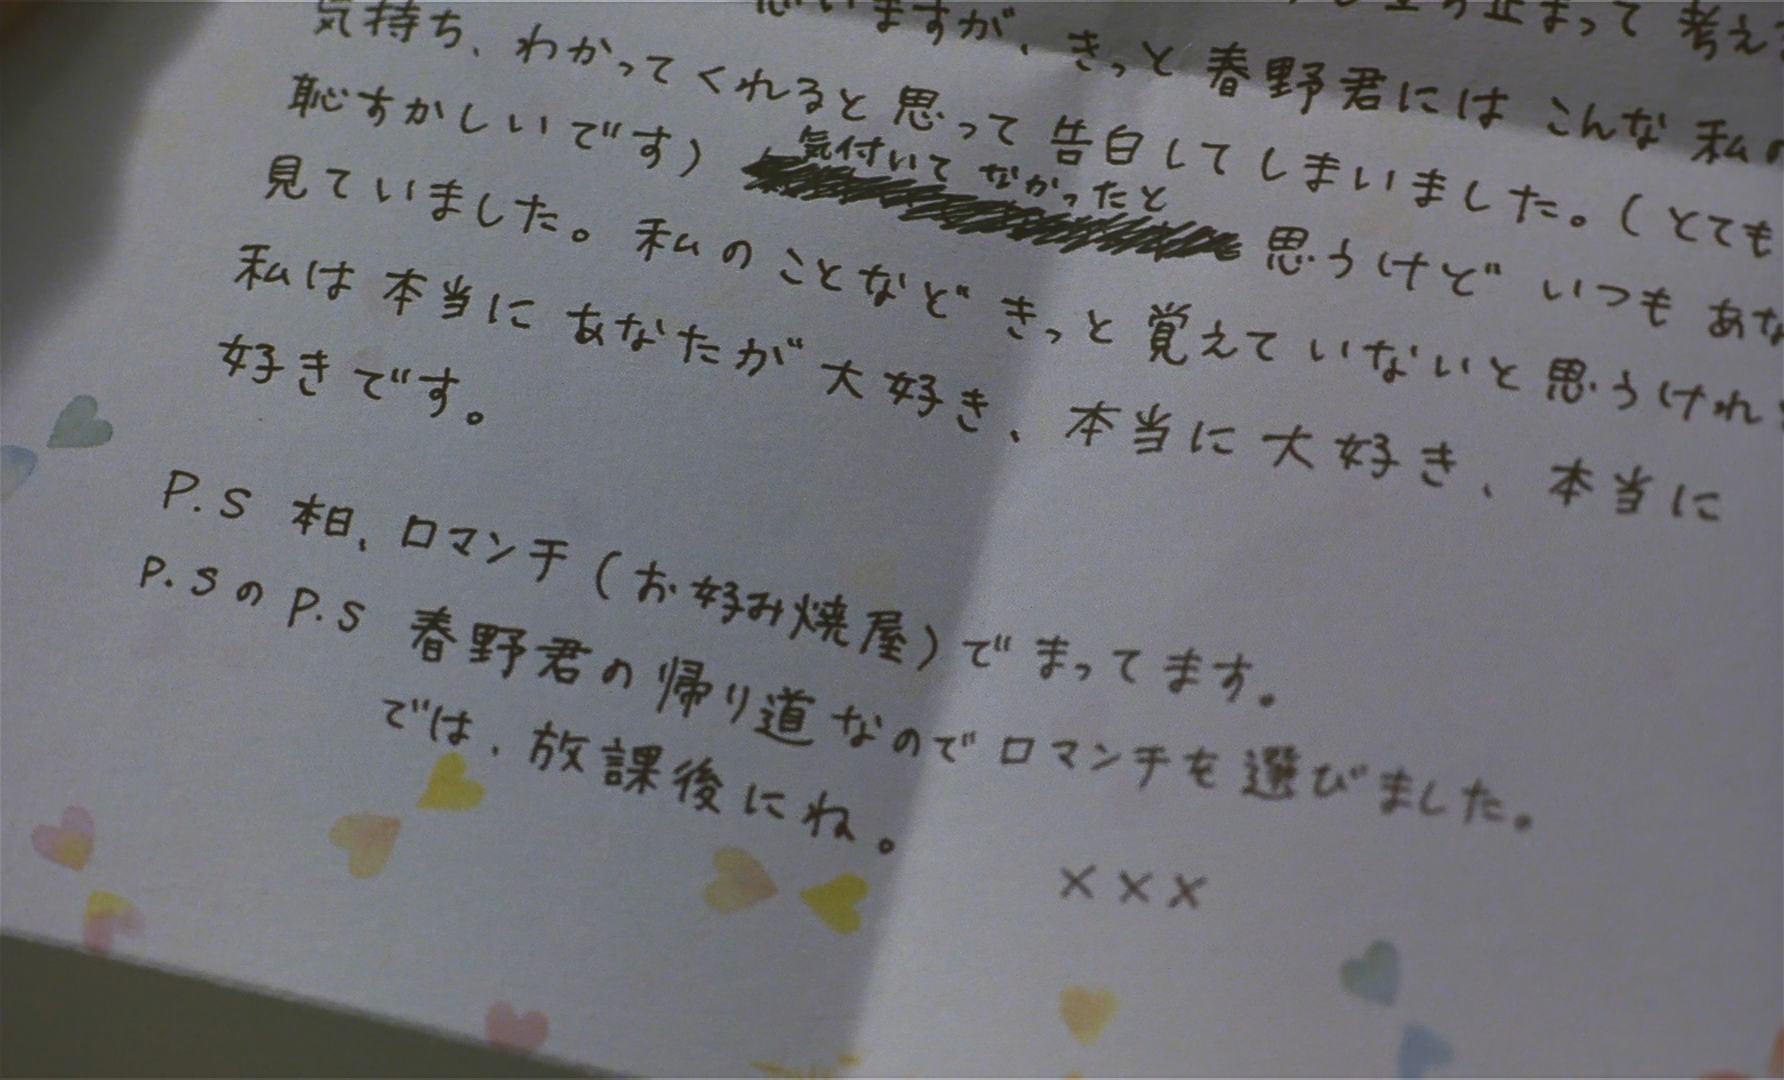 止まって 考え
思いますが、きっと 春野君には こんな 私の
気持ち、わかってくれると思って 告白してしまいました。(とても
恥すかしいです) 気付いてなかったと 思うけど いつも あな
見ていました。私のことなど きっと 覚えていないと思うけれ
私は 本当に あなたが 大好き、本当に大好き、本当に
好きです。
P.S 本日、ロマンチ(お好み焼屋)で まってます。
P.SのP.S 春野君の帰り道なので ロマンチを選びました。
では、放課後にね。
×××